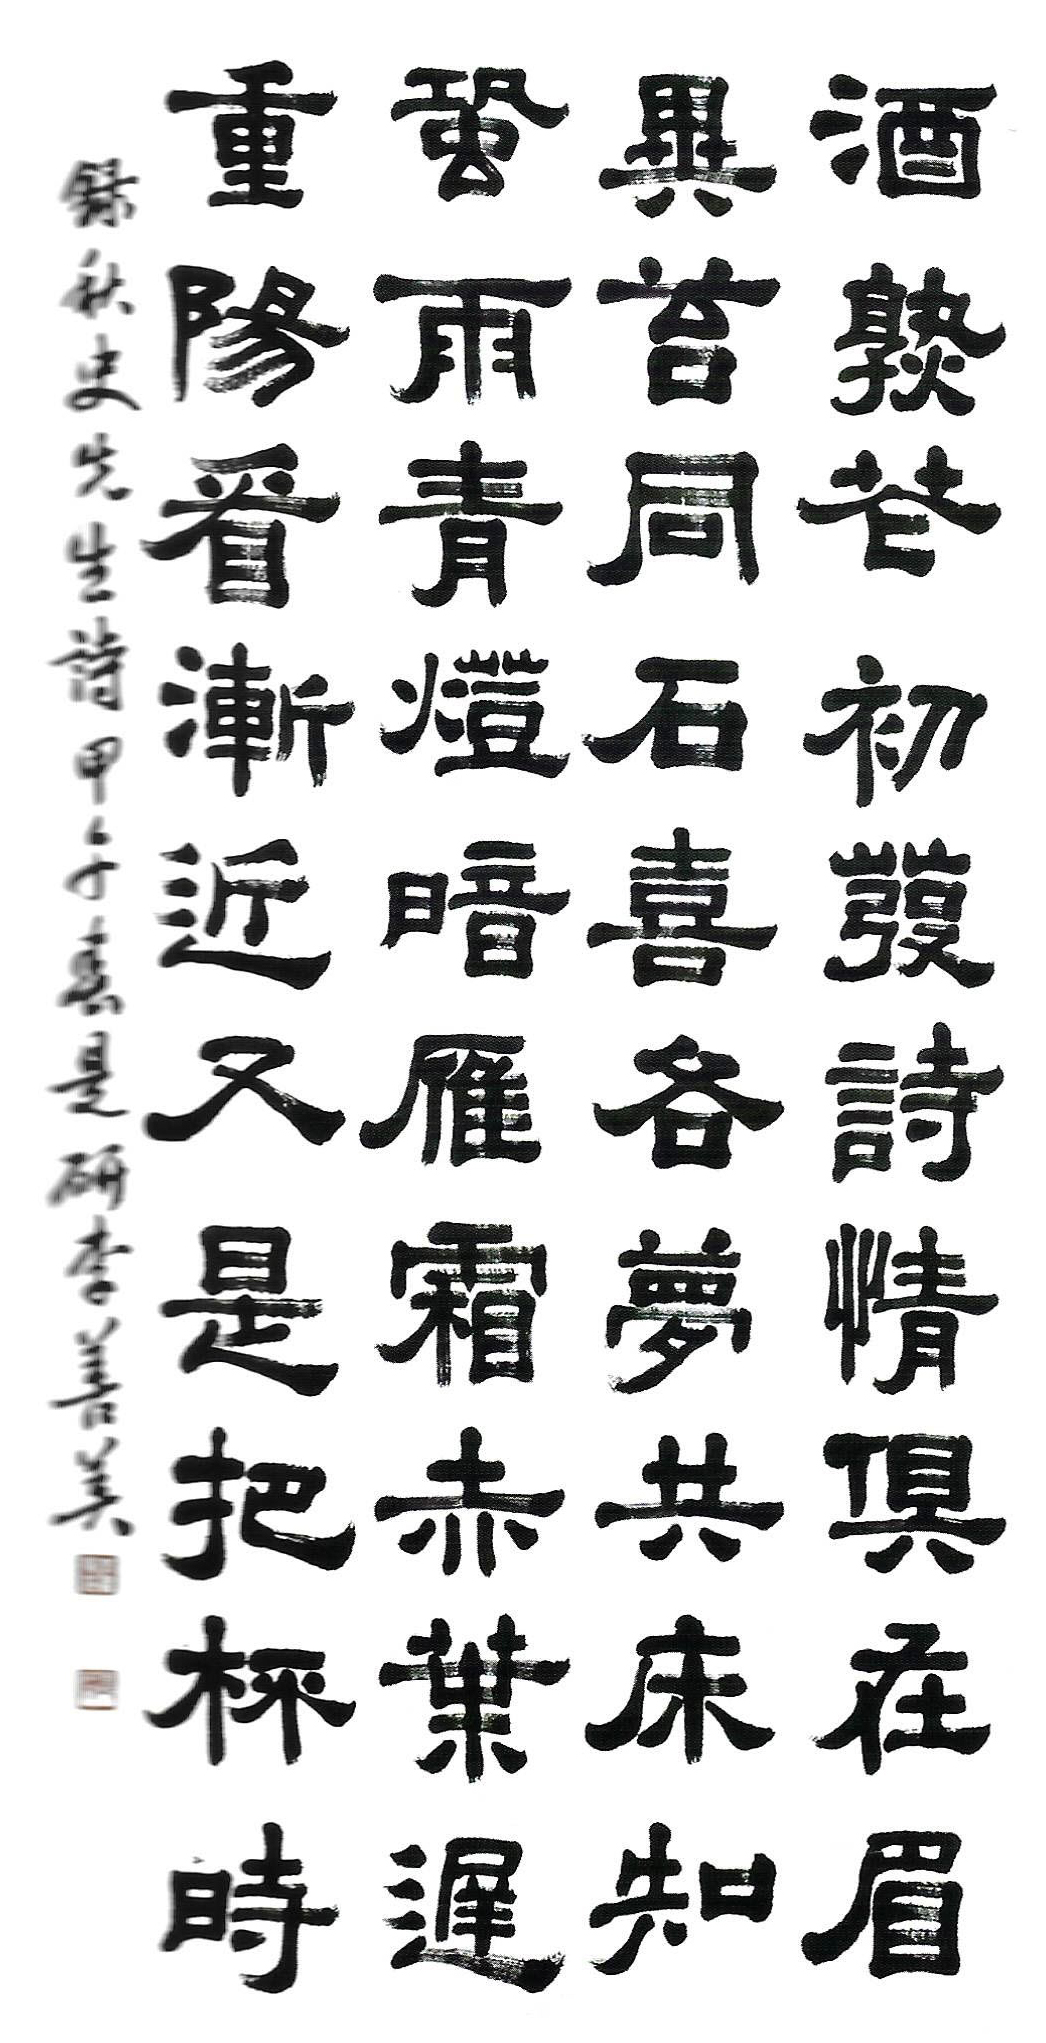 酒熟芒初發詩情俱在眉
異苔同石喜各夢共床知
蛩雨青燈暗雁霜赤葉遲
重陽看漸近又是把杯時
錄秋史先生詩甲午春是研李善美